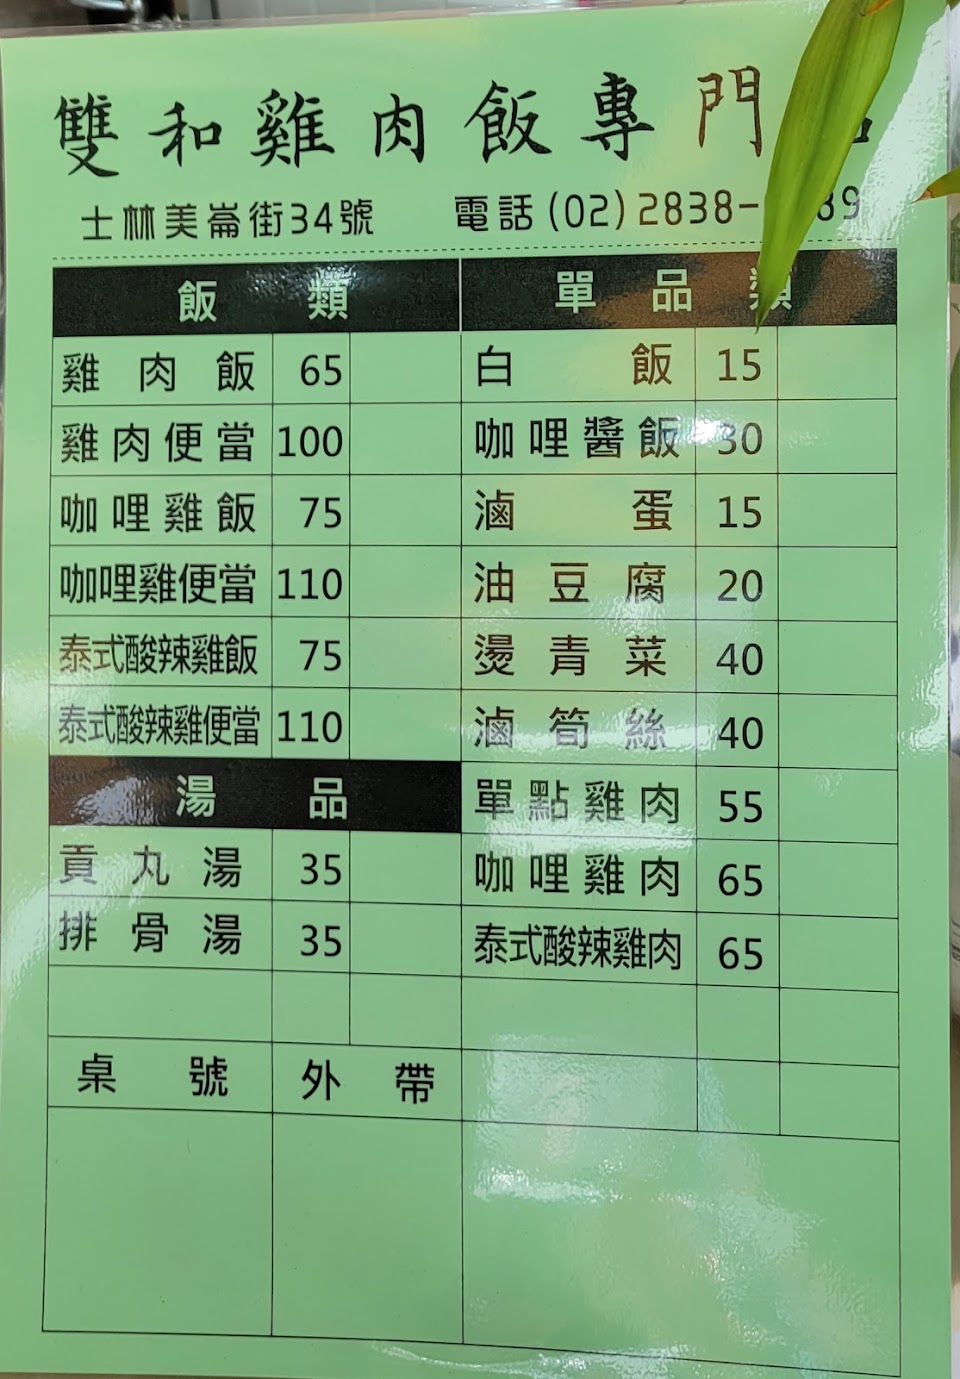 雙和雞肉飯專門
士林美崙街34號 電話(02)2838- 89
飯類
雞肉飯 65
雞肉便當 100
咖哩雞飯 75
咖哩雞便當 110
泰式酸辣雞飯 75
泰式酸辣雞便當 110
湯品
貢丸湯 35
排骨湯 35
桌號 外帶
單品類
白飯 15
咖哩醬飯 30
滷蛋 15
油豆腐 20
燙青菜 40
滷筍絲 40
單點雞肉 55
咖哩雞肉 65
泰式酸辣雞肉 65